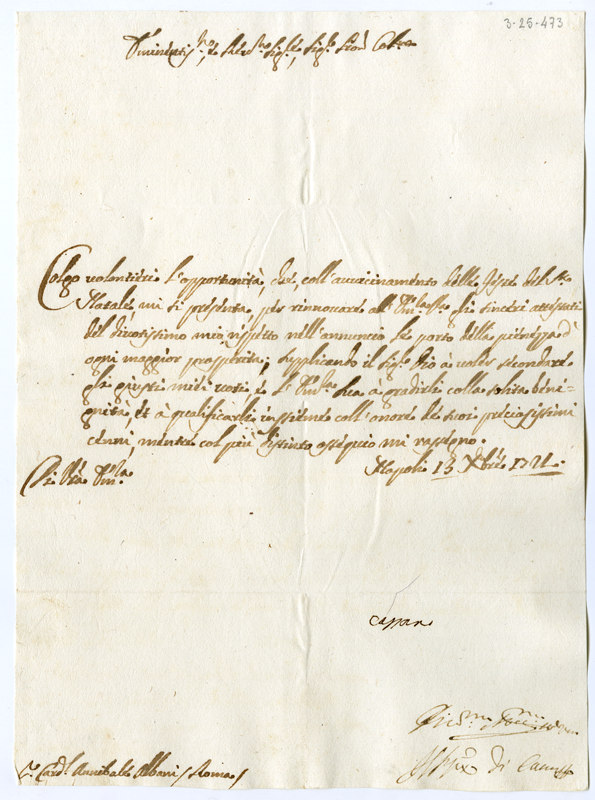 3-25-473
Eminentis.mo, e Rev.mo Sig.re, Sig.re Pron Col.mo
Colgo volontieri l'opportunità, che coll'avvicinamento delle feste del S.to
Natale, mi si presenta, per rinnovare all'Em.za V.ra gli sinceri attestati
del divotissimo mio rispetto nell'annuncio le porto della pienezza d'
ogni maggior prosperità; supplicando il Sig.re Dio à voler secondare
gli giusti miei voti, e l'Em.za Sua a gradirli colla solita beni-
gnità, et à qualificarli insieme coll'onore de suoi preciosissimi
cenni, mentre col più distinto ossequio mi rassegno.
Di V.ra Em.za
Napoli 13 Xbre 1721.
Cassano
di
S.r Card.l Annibale Albani / Roma /